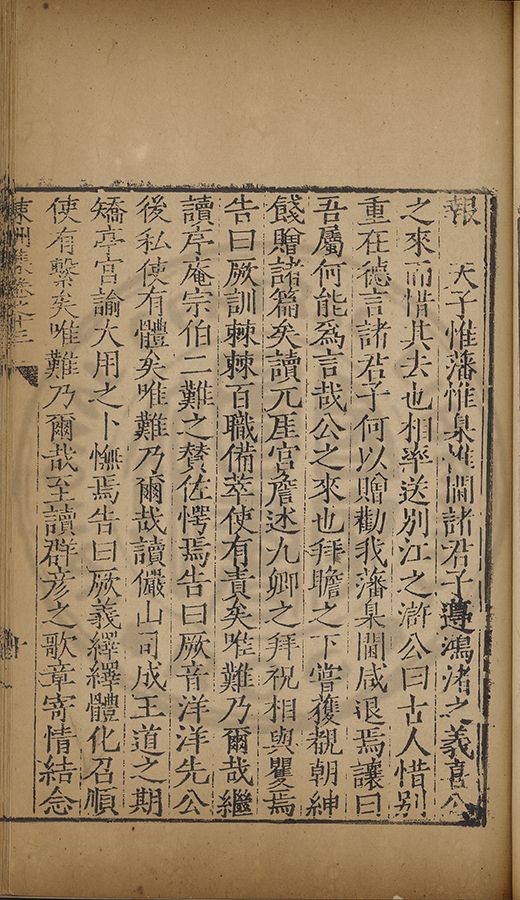 報　天子惟藩惟臬惟閫諸君子遵鴻渚之義喜公
之來而惜其去也相率送别江之滸公曰古人惜别
重在德言諸君子何以贈勸我藩臬閫咸退焉讓曰
吾屬何能爲言哉公之來也拜瞻之下嘗獲覩朝紳
餞贈諸篇矣讀元厓宮詹述九卿之拜祝相與瞿焉
告曰厥訓棘棘百職備萃使有責矣唯難乃爾哉繼
讀序庵宗伯二難之賛佐愕焉告曰厥音洋洋先公
後私使有體矣唯難乃爾哉讀儼山司成王道之期
矯亭宮諭大用之卜憮焉告曰厥義繹繹體化召順
使有繫矣唯難乃爾哉至讀群彦之歌章寄情結念
洲集卷之十三